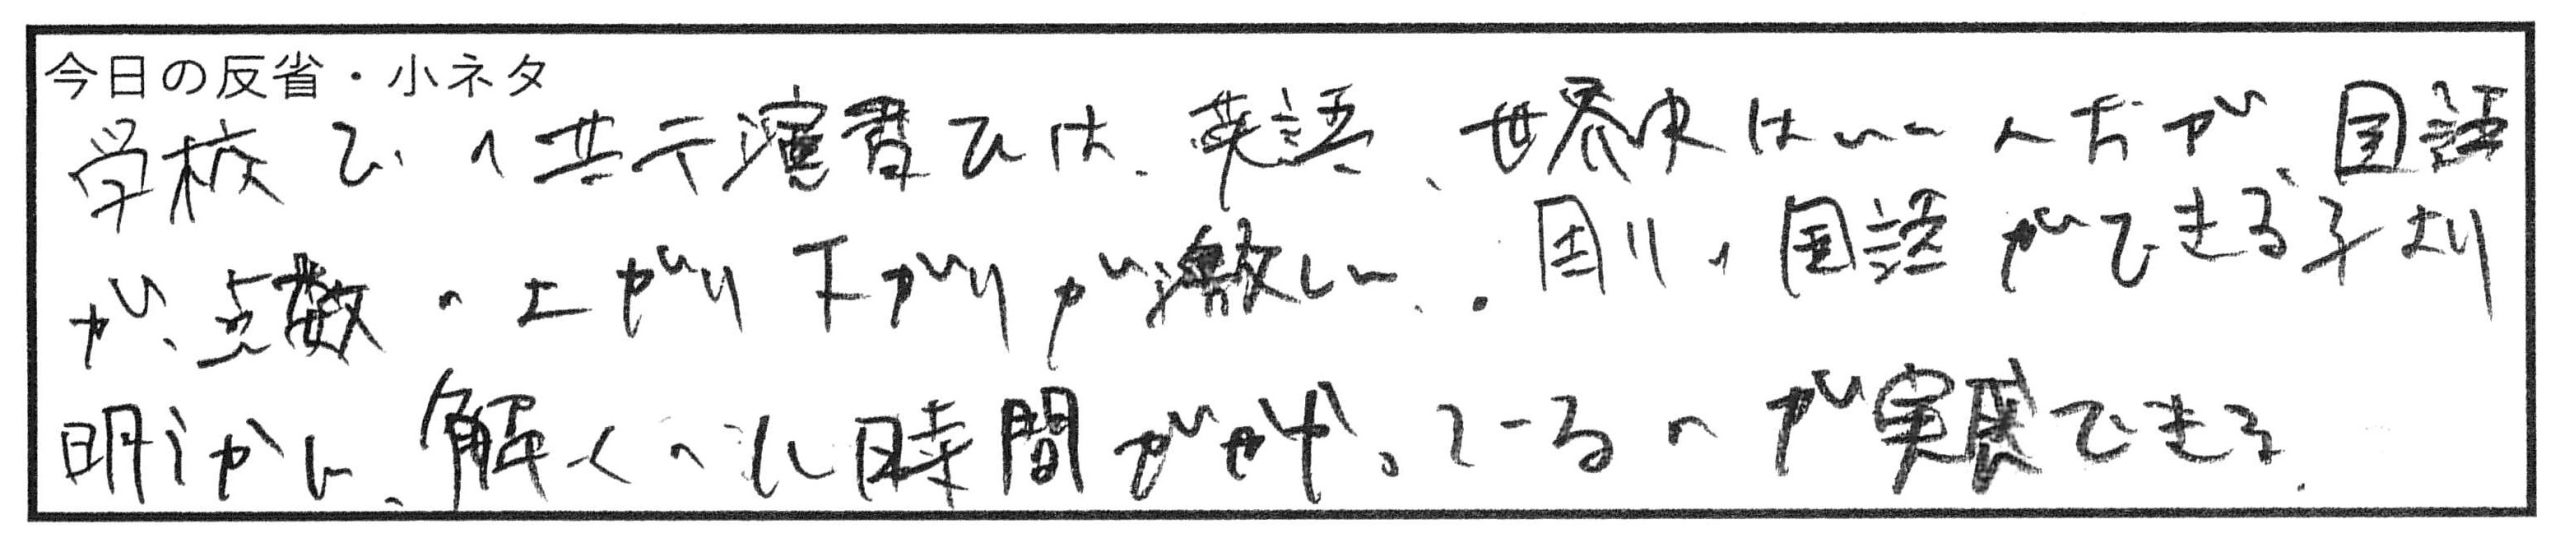 今日の反省・小ネタ
学校での共テ演習では、英語、世界史はいいんだが、国語
が、点数の上がり下がりが激しい。周りの国語ができる子より
明らかに、解くのに時間がかかっているのが実感できる。